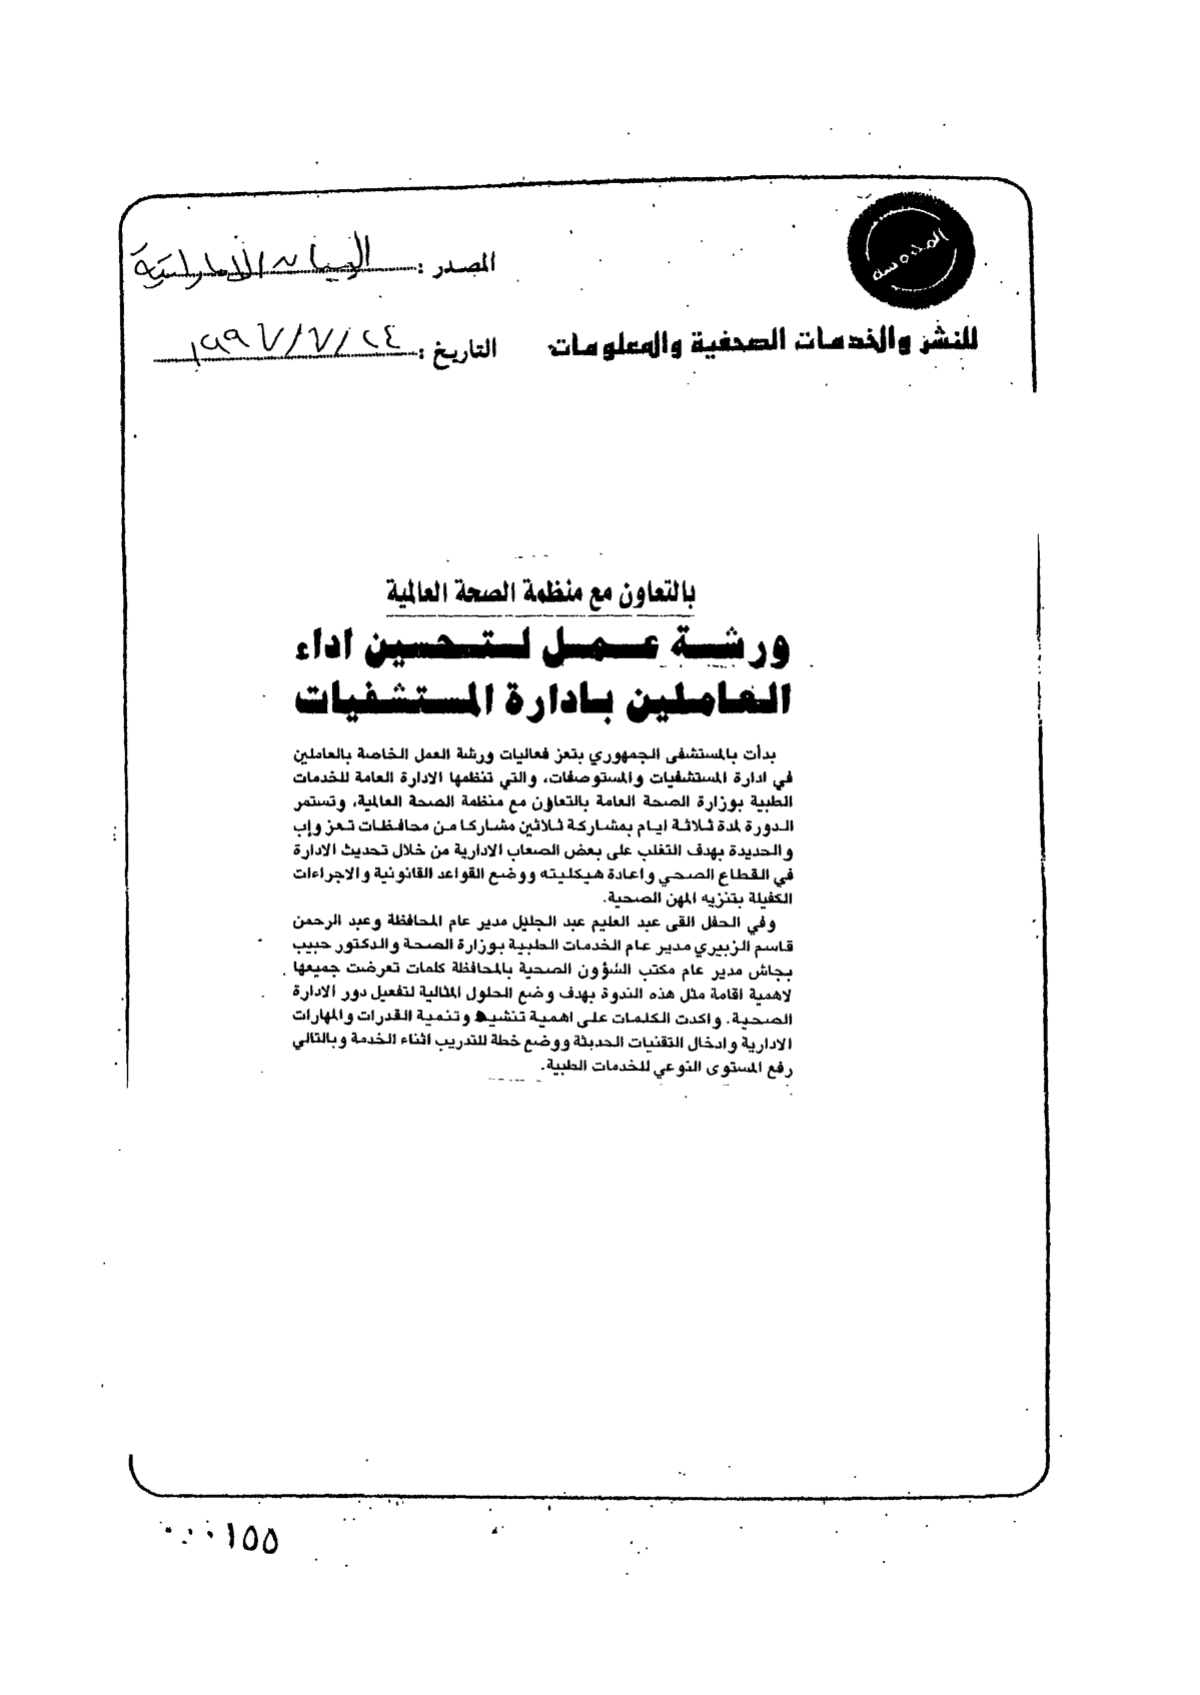 المصدر : البيان الاماراتية
للنشر والخدمات الصحفية والمعلومات
التاريخ : ٢٤/٧/١٩٩٧
بالتعاون مع منظمة الصحة العالمية
ورشة عمل لتحسين اداء
العاملين بادارة المستشفيات
بدأت بالمستشفى الجمهوري بتعز فعاليات ورشة العمل الخاصة بالعاملين
في ادارة المستشفيات والمستوصفات، والتي تنظمها الادارة العامة للخدمات
الطبية بوزارة الصحة العامة بالتعاون مع منظمة الصحة العالمية، وتستمر
الدورة لمدة ثلاثة ايام بمشاركة ثلاثين مشاركا من محافظات تعز وإب
والحديدة بهدف التغلب على بعض الصعاب الادارية من خلال تحديث الادارة
في القطاع الصحي واعادة هيكليته ووضع القواعد القانونية والاجراءات
الكفيلة بتنزيه المهن الصحية.
وفي الحفل القى عبد العليم عبد الجليل مدير عام المحافظة وعبد الرحمن
قاسم الزبيري مدير عام الخدمات الطبية بوزارة الصحة والدكتور حبيب
بجاش مدير عام مكتب الشؤون الصحية بالمحافظة كلمات تعرضت جميعها
لاهمية اقامة مثل هذه الندوة بهدف وضع الحلول المثالية لتفعيل دور الادارة
الصحية. واكدت الكلمات على اهمية تنشيط وتنمية القدرات والمهارات
الادارية وادخال التقنيات الحديثة ووضع خطة للتدريب اثناء الخدمة وبالتالي
رفع المستوى النوعي للخدمات الطبية.
١٥٥